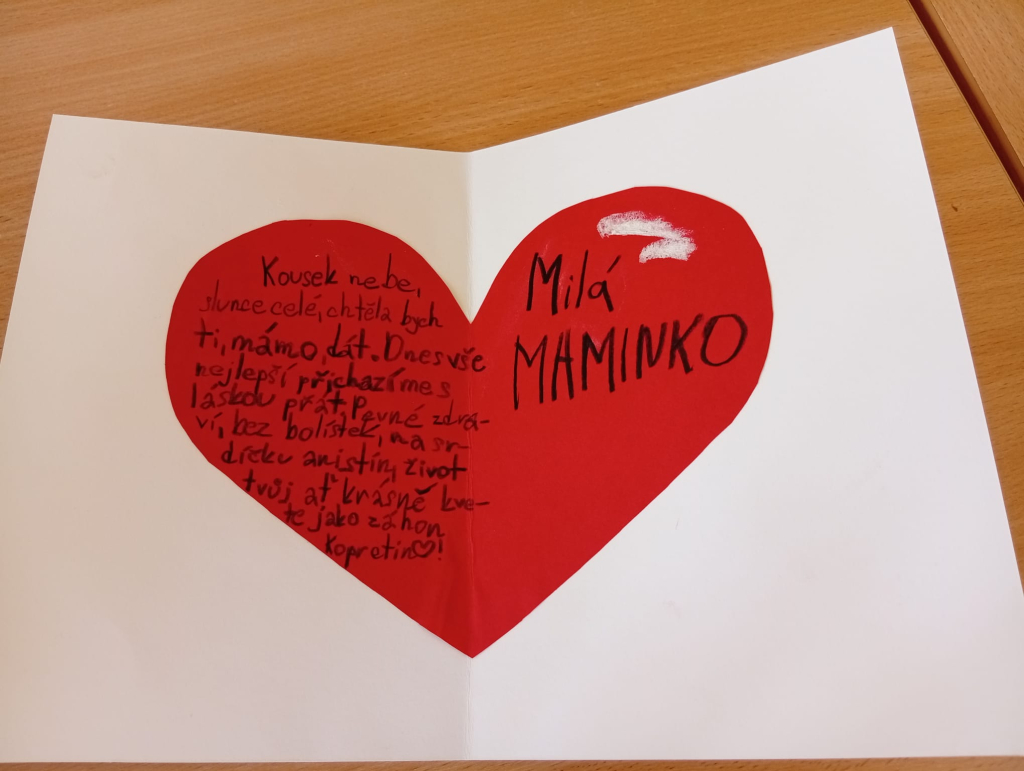 Kousek nebe,
slunce celé, chtěla bych
ti, mámo, dát. Dnes vše
nejlepší přichazíme s
láskou přát. Pevné zdra-
ví, bez bolístek, na sr-
díčku ani stín, život
tvůj ať krásně kve-
te jako záhon
Kopretin♡!
Milá
MAMINKO